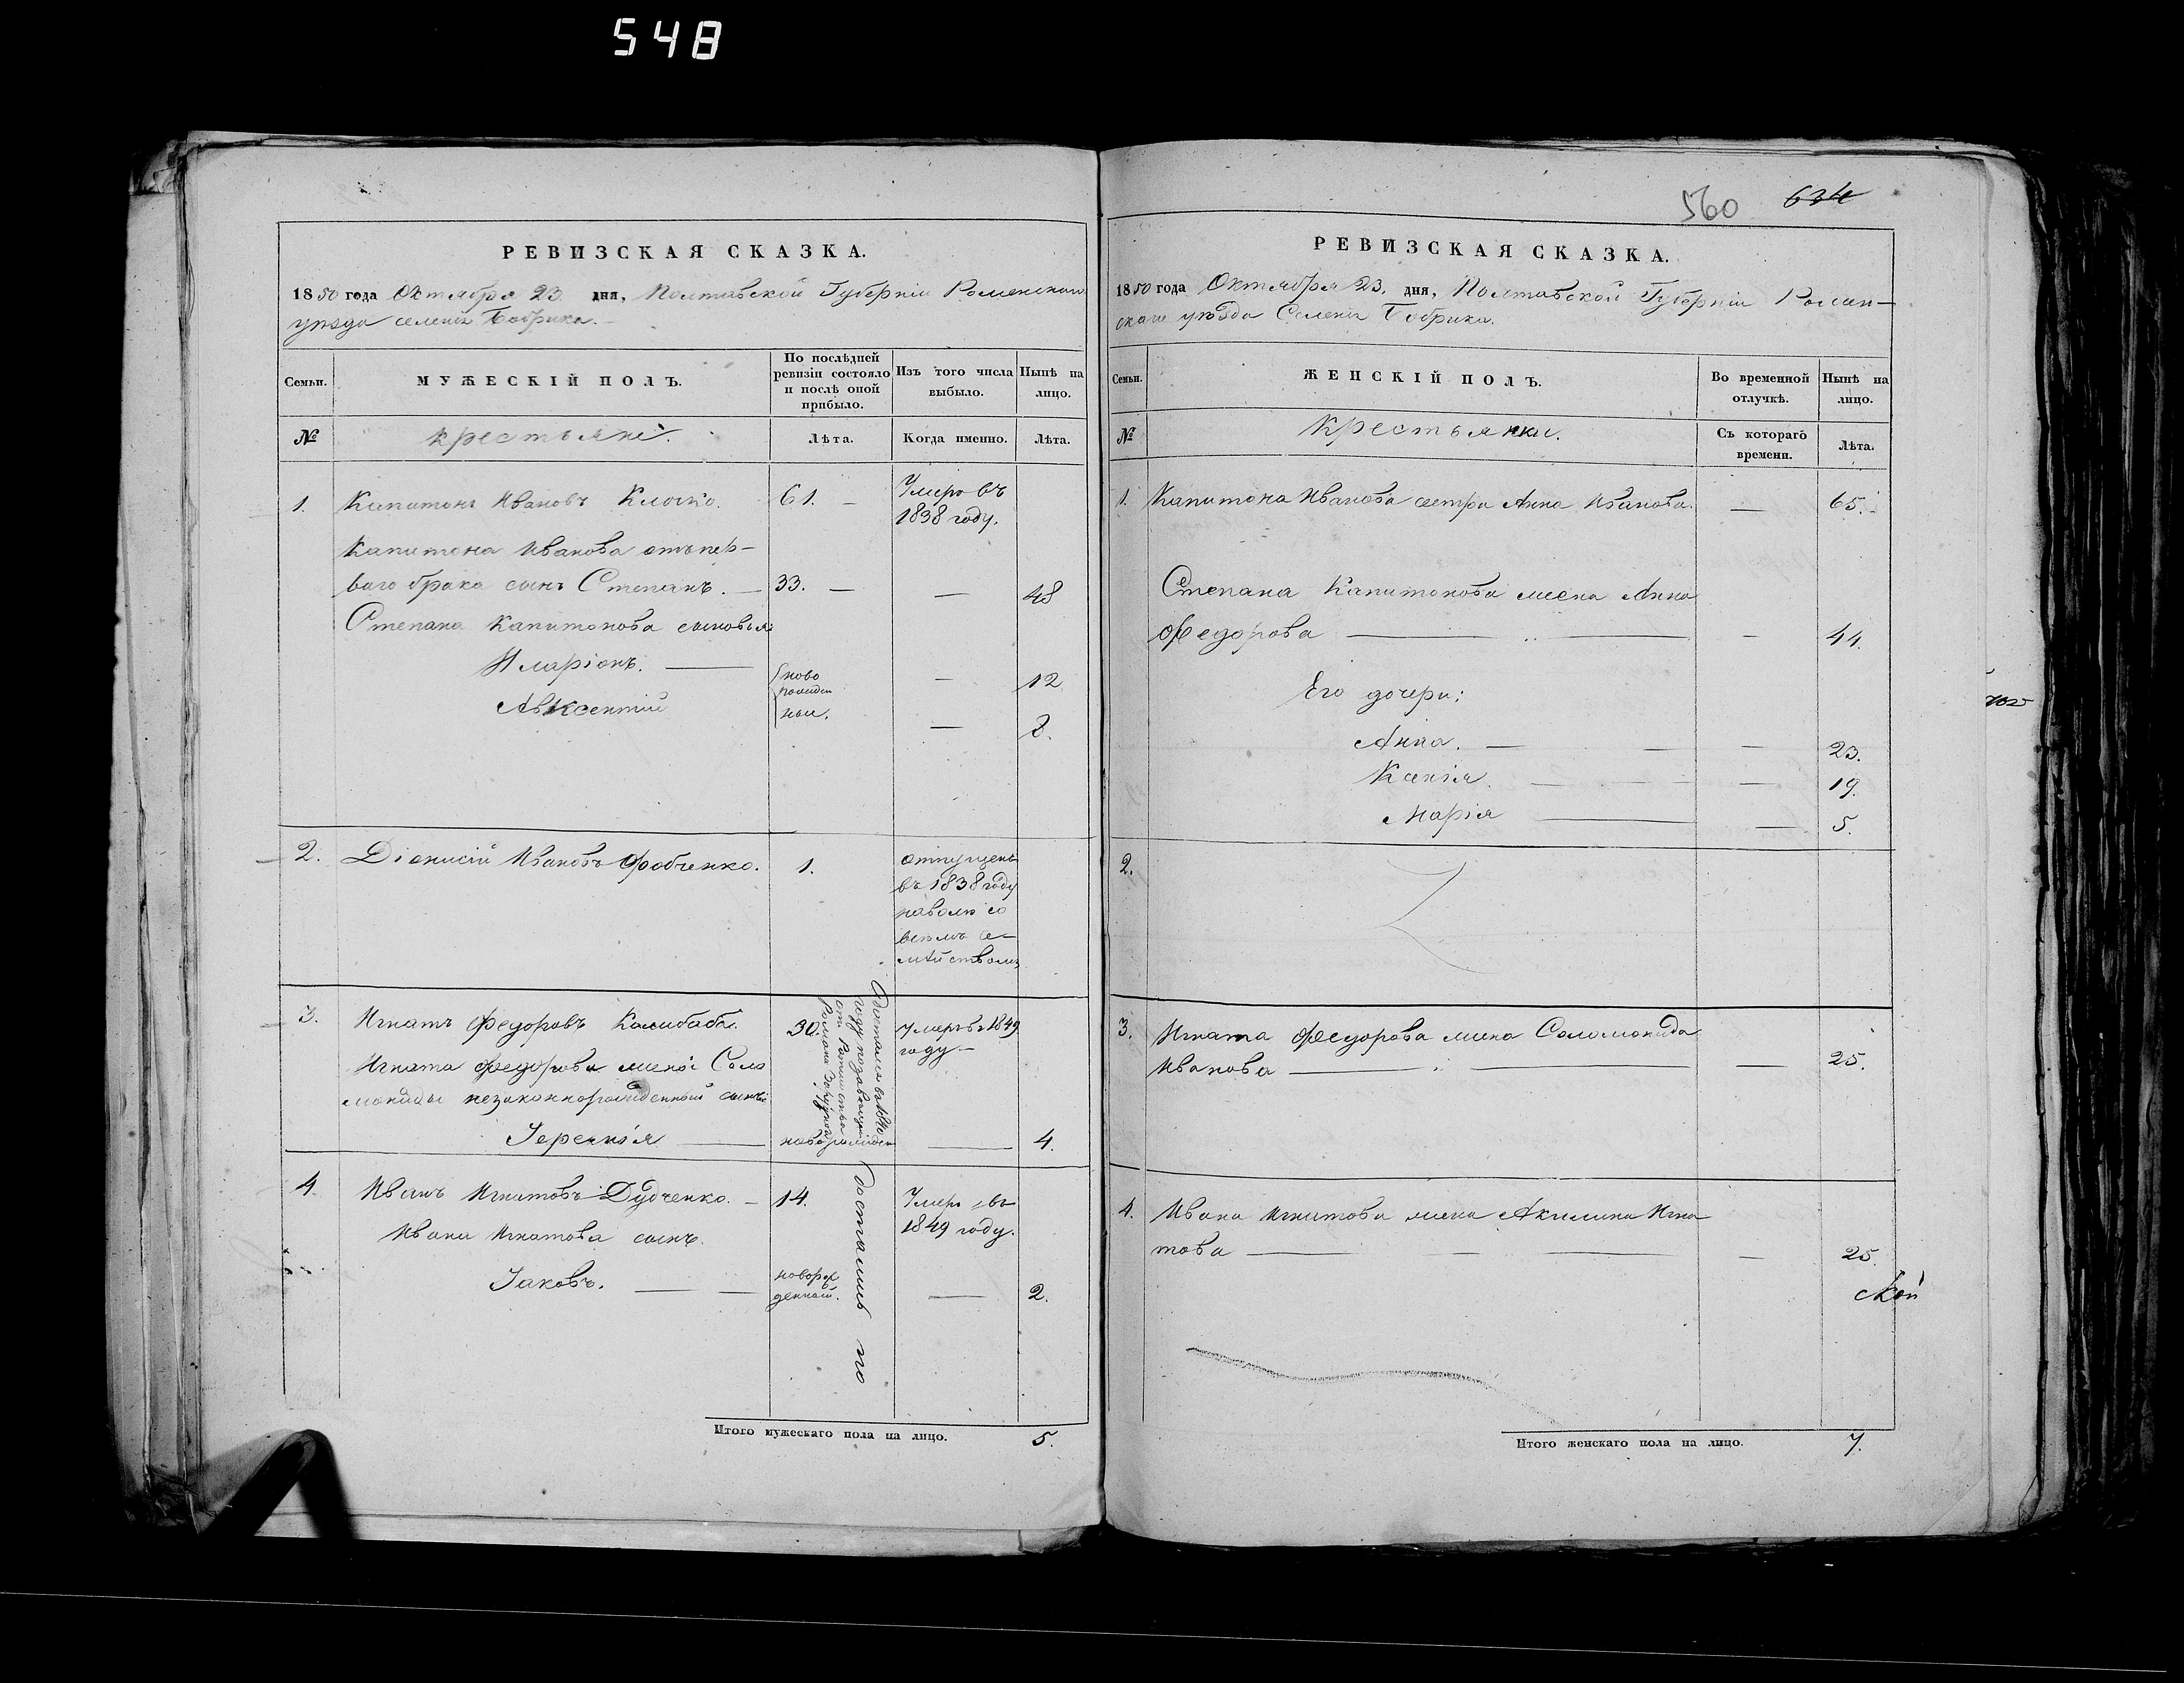 548
РЕВИЗСКАЯ СКАЗКА.
1850 года Октября 23 дня, Полтавской Губерніи Роменскаго
уѣзда селенія Бобрика.
Семьи.
МУЖЕСКІЙ ПОЛЪ.
По послѣдней
ревизіи состояло
и послѣ оной
прибыло.
Изъ того числа
выбыло.
Нынѣ на
лицо.
№
крестьяне.
Лѣта.
Когда именно.
Лѣта.
1. Капитонъ Ивановъ Клочко. 61. — Умеръ въ
1838 году.
Капитона Иванова отъ пер-
ваго брака сынъ Степанъ. — 33. — — 48
Степана Капитонова сыновья:
Иларіонъ. — ново — 12
рожден
Авксентій ныи. — 8.
2. Діонисій Ивановъ 1. отпущенъ
въ 1838 году
наволю со
всѣмъ се-
мѣйствомъ
3. Игнатъ Федоровъ 30. Умеръ въ 1849
году —
Игната Федорова жены Соло
мониды незаконнорожденный сынъ
Іеремія — новорожден — 4.
Достался въ
году по
отъ
4. Иванъ Игнатовъ Дудченко. — 14. Умеръ въ
1849 году.
Ивана Игнатова сынъ.
Іаковъ. — — новорож
денный. — 2.
достались по
Итого мужескаго пола на лицо. 5.
560 634
РЕВИЗСКАЯ СКАЗКА.
1850 года Октября 23. дня, Полтавской Губерніи Ромен-
скаго уѣзда Селенія Бобрика.
Семьи.
ЖЕНСКІЙ ПОЛЪ.
Во временной
отлучкѣ.
Нынѣ на
лицо.
№
Крестьянки.
Съ котораго
времени.
Лѣта.
1. Капитона Иванова сестра Анна Иванова. — 65.
Степана Капитонова жена Анна
Федорова — — — 44.
Его дочери:
Анна. — — — 23.
Ксенія. — — 19.
Марія — — 5.
2.
3. Игната Федорова жена Соломонида
Иванова — — — 25.
4. Ивана Игнатова жена Акилина Игна
това — — — — 25.
Итого женскаго пола на лицо. 7.